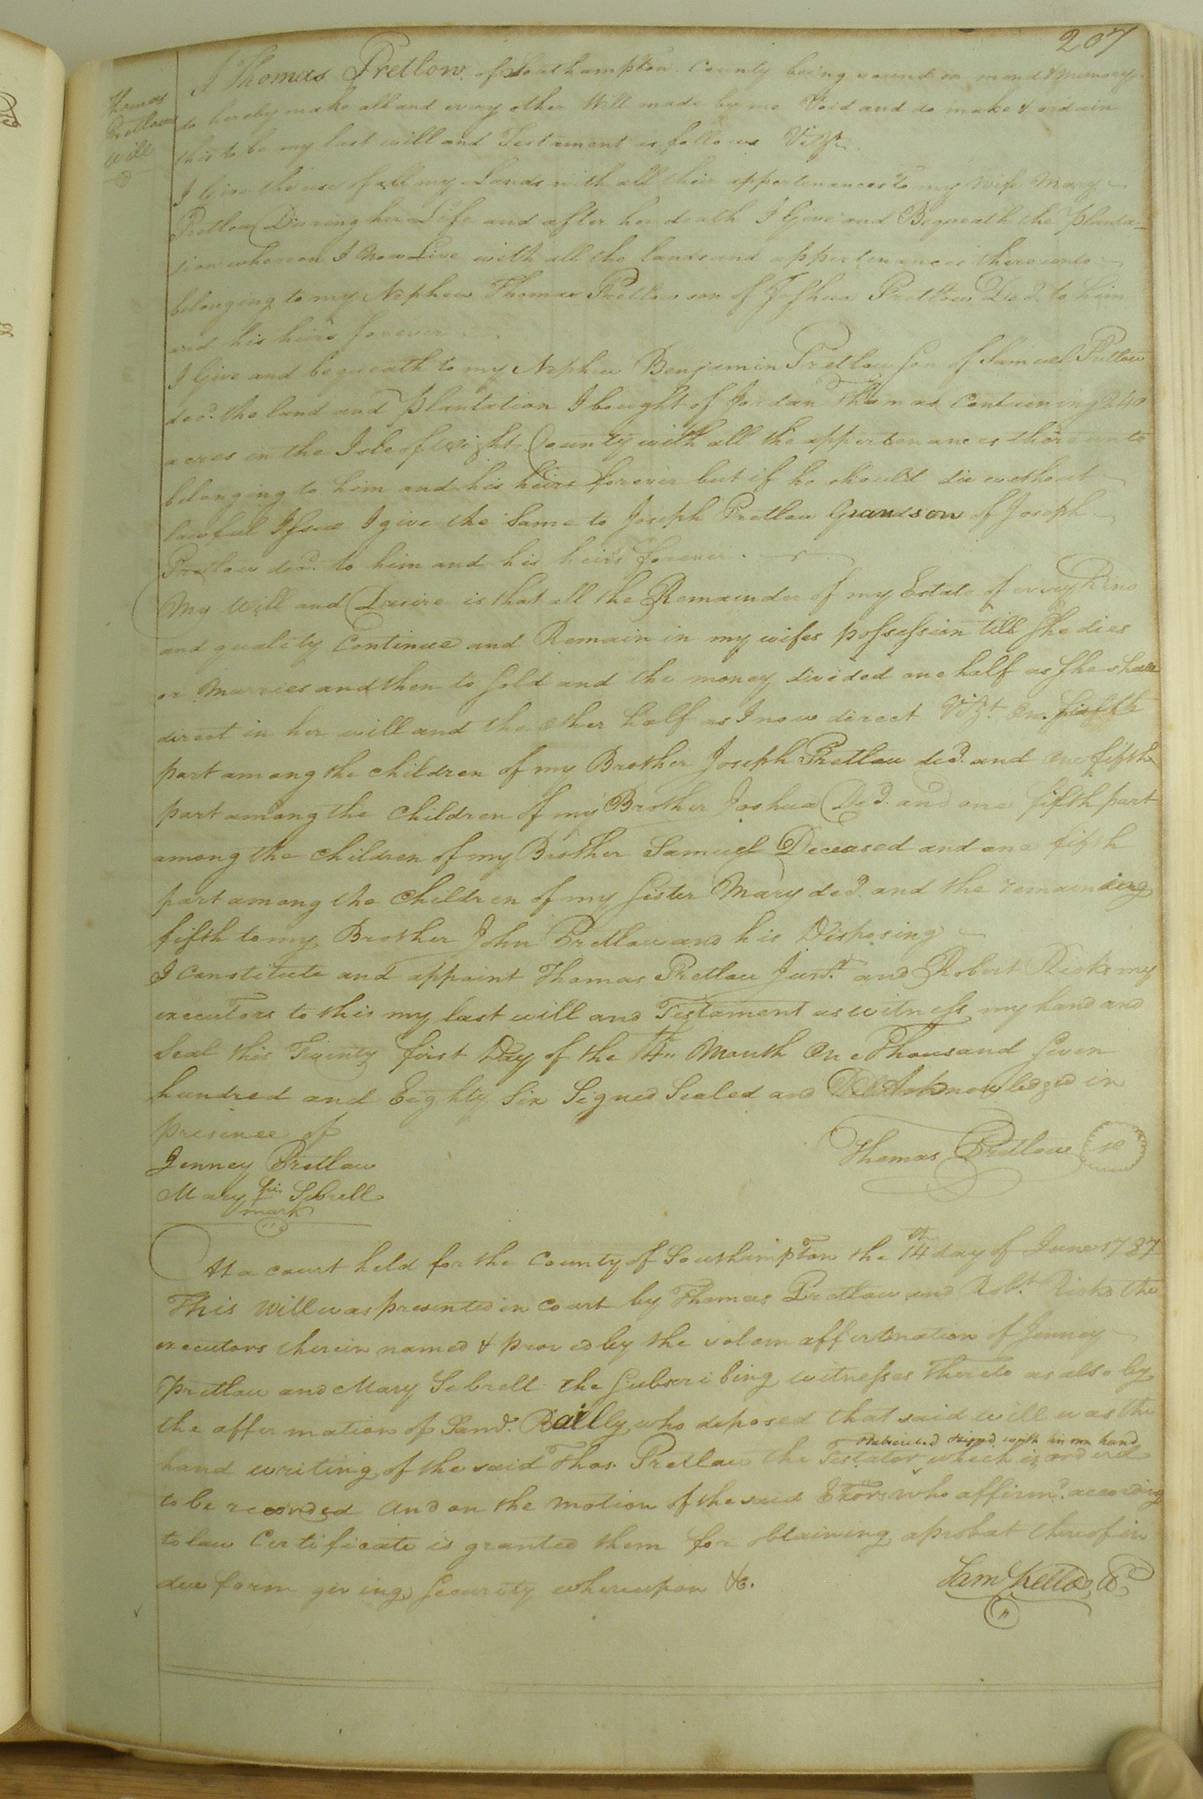 207
Thomas
Pretlow
Will
I Thomas Pretlow of Southampton County being sound in mind & Memory
do hereby make all and every other Will made by me Void and do make & ordain
this to be my last will and Testament as follows Vizt.
I Give the use of all my Lands with all their appertenances to my wife Mary
Pretlow During her Life and after her death I Give and Bequeath the planta-
tion whereon I Now Live with all the lands and appertenances thereunto
belonging to my Nephew Thomas Pretlow son of Joshua Pretlow Decd. to him
and his heirs forever
I Give and bequeath to my Nephew Benjamin Pretlow Son of Samuel Pretlow
decd. the land and plantation I bought of Jordan Thomas Containing 240
acres in the Isle of Wight County with all the appertenances thereunto
belonging to him and his heirs forever but if he should die without
lawful Issue I give the Same to Joseph Pretlow Grandson of Joseph
Pretlow decd. to him and his heirs forever.
My Will and Desire is that all the Remainder of my Estate of every Kind
and quality Continue and Remain in my wifes possession till She dies
or Marries and then to Sold and the money divided one half as She shall
direct in her will and the other half as I now direct Vizt. One fifth
part among the children of my Brother Joseph Pretlow decd. and one fifth
part among the Children of my Brother Joshua Decd. and one fifth part
among the children of my Brother Samuel Deceased and one fifth
part among the Children of my Sister Mary decd. and the remaining
fifth to my Brother John Pretlow and his Disposing
I Constitute and appoint Thomas Pretlow Junr. and Robert Ricks my
executors to this my last will and Testament as witness my hand and
Seal this Twenty first Day of the 4th Month One Thousand Seven
hundred and Eighty Six Signed Sealed and Acknowledged in
presence of
Jenney Pretlow
Thomas Pretlow
Mary Sebrell
mark
At a court held for the County of Southampton the 14th day of June 1787
This Will was presented in Court by Thomas Pretlow and Robt. Ricks the
executors therein named & proved by the solem affirmation of Jenney
Pretlow and Mary Sebrell the Subscribing witnesses thereto as also by
the affirmation of Saml. Bailly who deposed that said will was the
hand writing of the said Thos. Pretlow the Testator which is ordered
& signd with his own hand
to be recorded And on the motion of the said Exors who affirmd. according
to law Certificate is granted them for obtaining a probat thereof in
due form giving Security whereupon &c.
Sam Kello